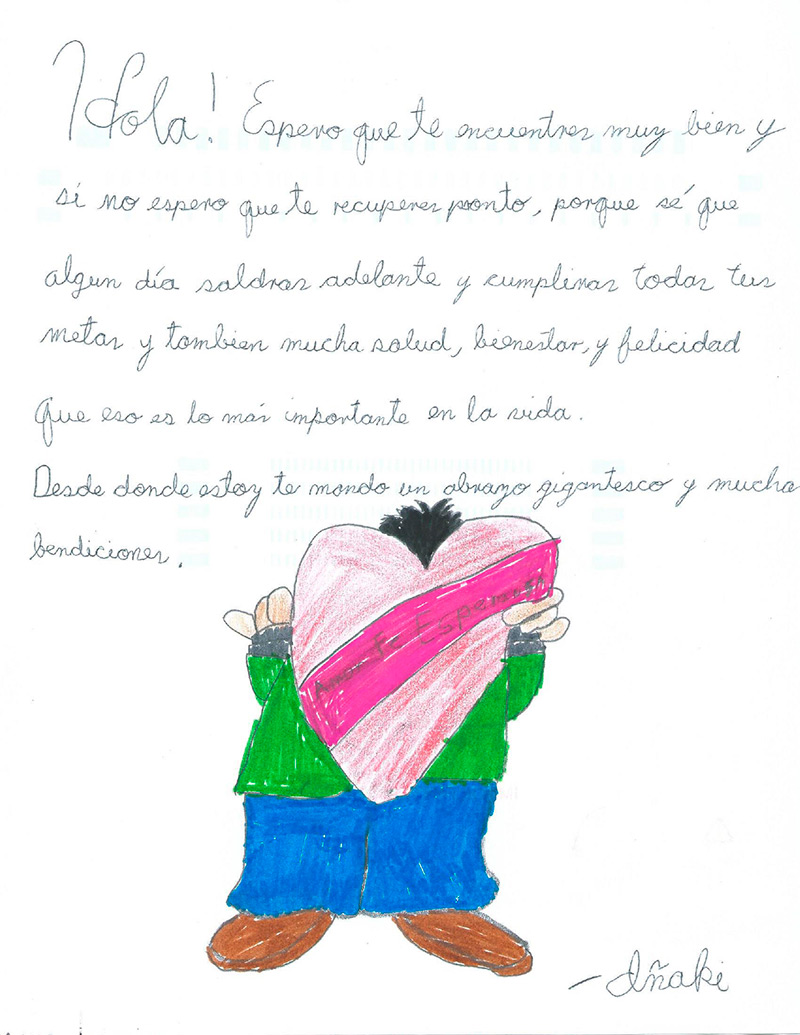 ¡Hola! Espero que te encuentres muy bien y
si no espero que te recuperes pronto, porque sé que
algun día saldras adelante y cumpliras todas tus
metas y tambien mucha salud, bienestar, y felicidad
que eso es lo más importante en la vida.
Desde donde estoy te mando un abrazo gigantesco y mucha
bendiciones.
Amor Fe Esperanza
- Iñaki